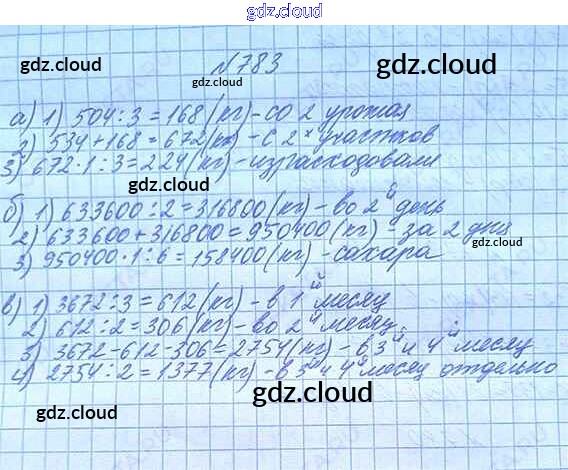 gdz.cloud
gdz.cloud
№783
gdz.cloud
gdz.cloud
а) 1) 504:3=168(кг)-со 2 урожая
2) 534+168=672(кг)-с 2х участков
3) 672·1:3=224(кг)-израсходовали
gdz.cloud
б) 1) 633600:2=316800(кг)-во 2й день
2) 633600+316800=950400(кг)-за 2 дня
3) 950400·1:6=158400(кг)-сахара
gdz.cloud
в) 1) 3672:3=612(кг)-в 1й месяц
2) 612:2=306(кг)-во 2й месяц.
3) 3672-612-306=2754(кг)-в 3й и 4й месяц
4) 2754:2=1377(кг)-в 3й и 4й месяц отдельно
gdz.cloud
gdz.cloud